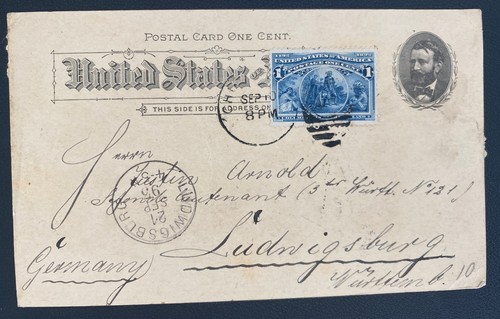 POSTAL CARD ONE CENT.
United States
THIS SIDE IS FOR ADDRESS O
1492 1892
UNITED STATES OF AMERICA
1 POSTAGE ONE CENT 1
SEP 10
8 PM
Herrn
Arnold
(3te Württ. No 121)
LUDWIGSBURG
21
SEP
93
Ludwigsburg
Germany
Württemb.
10